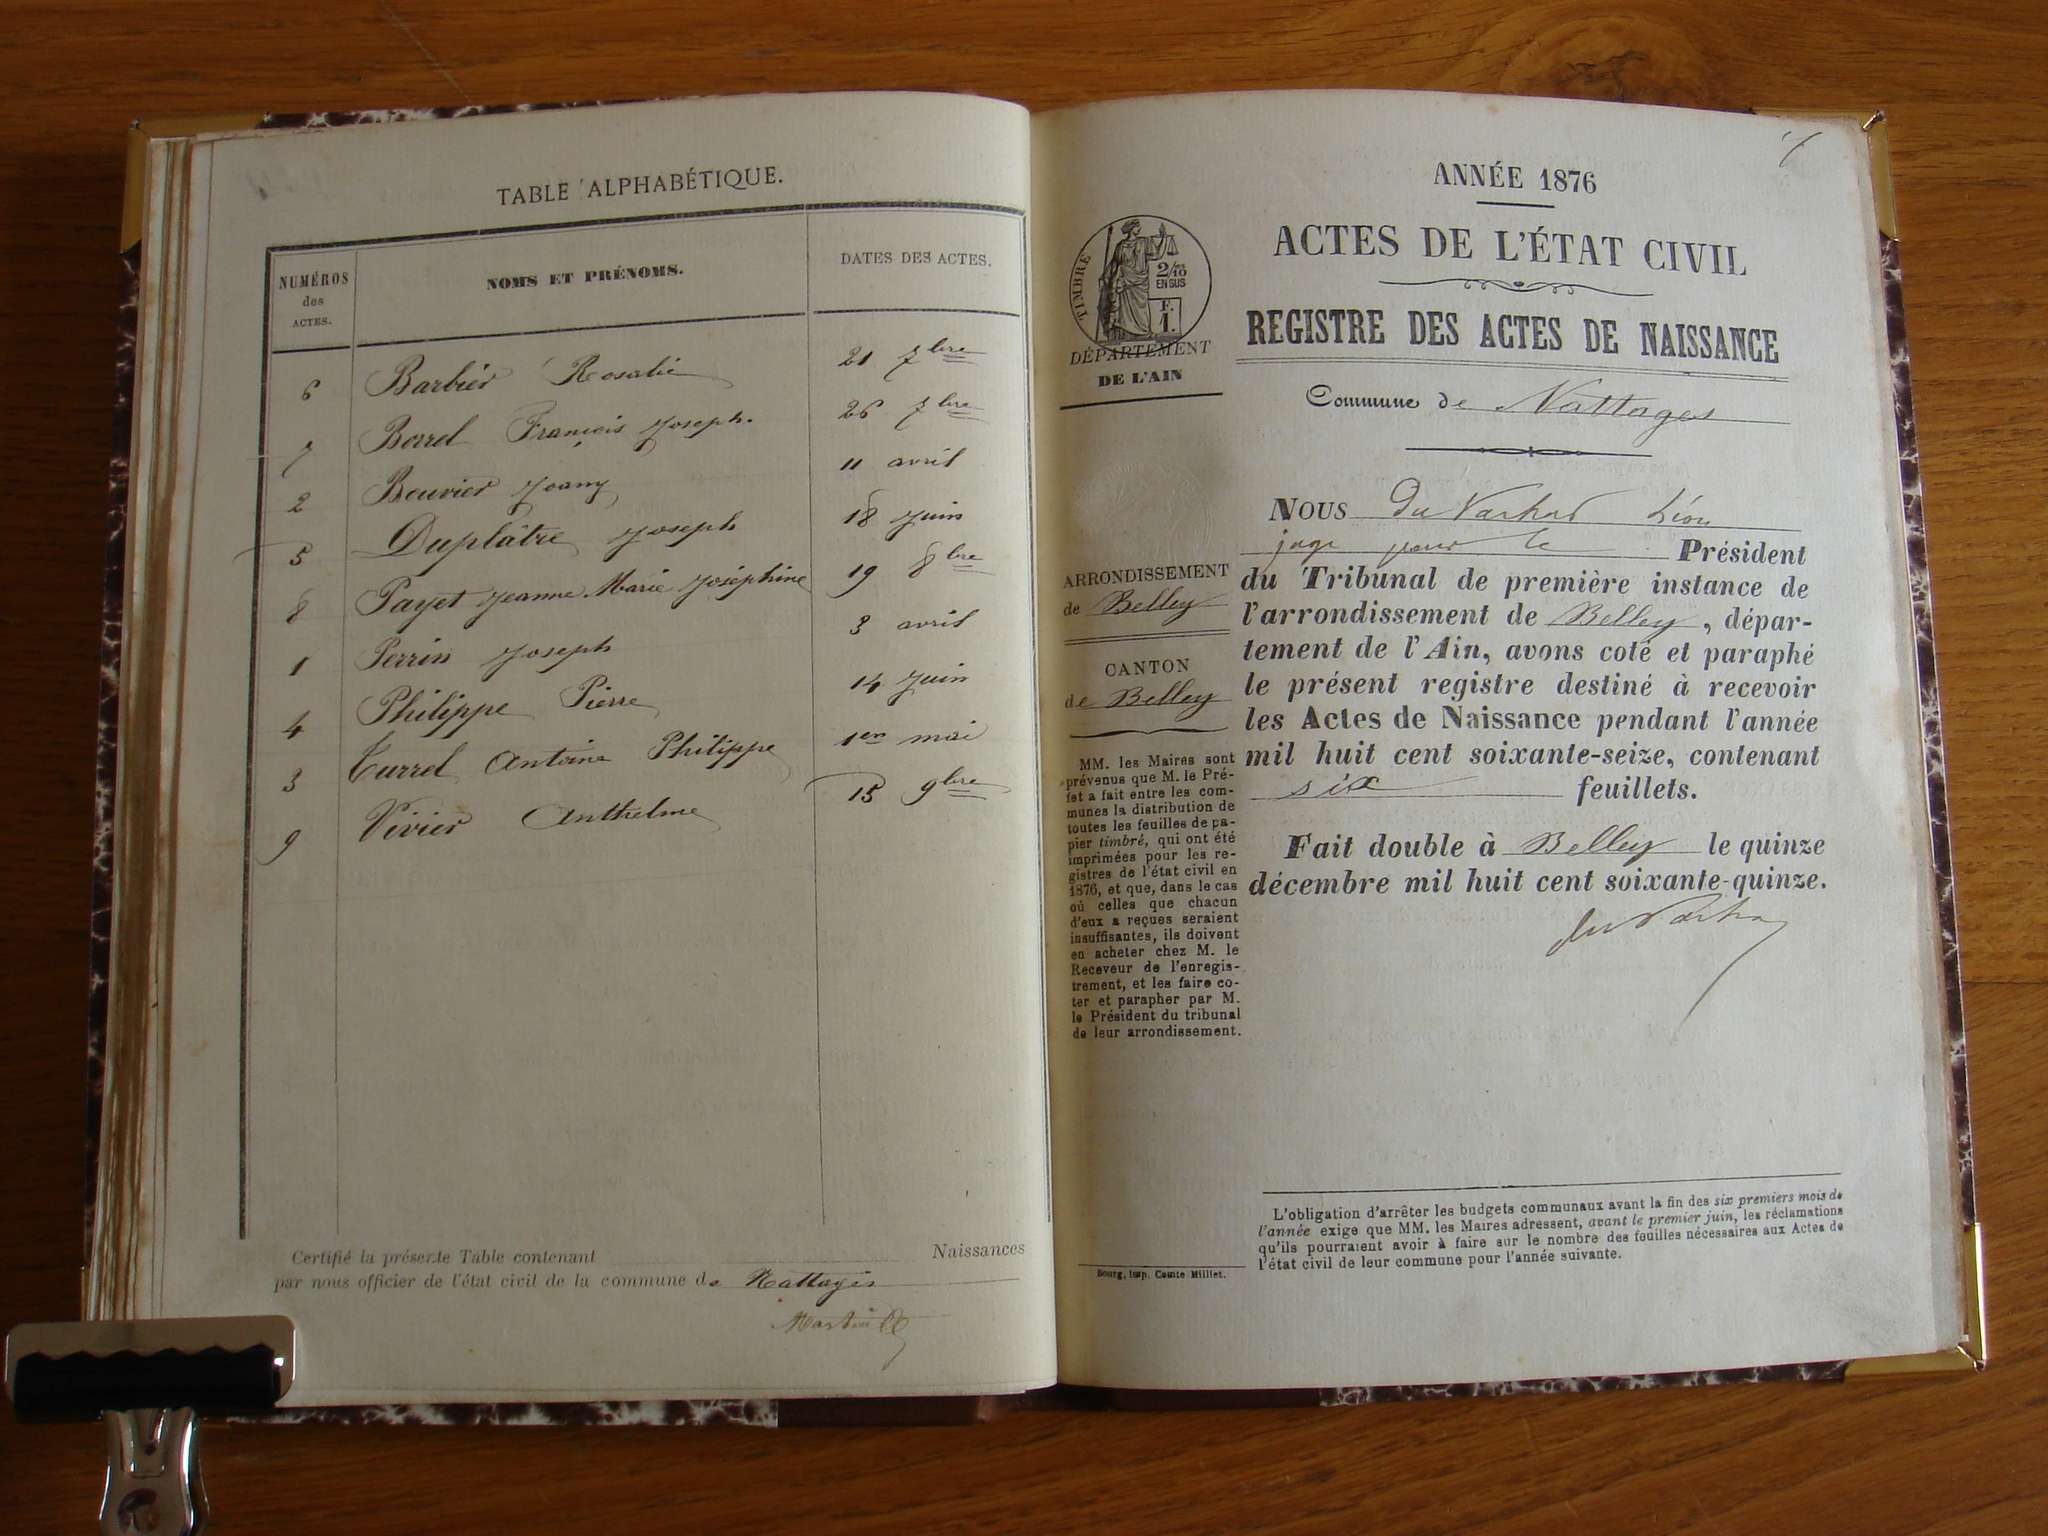 TABLE ALPHABÉTIQUE.
NUMÉROS
des
ACTES.
NOMS ET PRÉNOMS.
DATES DES ACTES.
6 Barbier Rosalie 21 7bre
7 Borrel François Joseph. 26 7bre
2 Bouvier Joany 11 avril
5 Duplâtre Joseph 18 Juin
8 Payet Jeanne Marie Joséphine 19 8bre
1 Perrin Joseph 3 avril
4 Philippe Pierre 14 Juin
3 Turrel Antoine Philippe 1er mai
9 Vivier Anthelme 15 9bre
Certifié la présente Table contenant Naissances
par nous officier de l'état civil de la commune de Nattages
ANNÉE 1876
ACTES DE L'ÉTAT CIVIL
REGISTRE DES ACTES DE NAISSANCE
Commune de Nattages
TIMBRE
2/10
EN SUS
F.
1.
DÉPARTEMENT
DE L'AIN
ARRONDISSEMENT
de Belley
CANTON
de Belley
MM. les Maires sont
prévenus que M. le Pré-
fet a fait entre les com-
munes la distribution de
toutes les feuilles de pa-
pier timbré, qui ont été
imprimées pour les re-
gistres de l'état civil en
1876, et que, dans le cas
où celles que chacun
d'eux a reçues seraient
insuffisantes, ils doivent
en acheter chez M. le
Receveur de l'enregis-
trement, et les faire co-
ter et parapher par M.
le Président du tribunal
de leur arrondissement.
Bourg, imp. Comte Milliet.
NOUS Du Léon
juge pour le Président
du Tribunal de première instance de
l'arrondissement de Belley, dépar-
tement de l'Ain, avons coté et paraphé
le présent registre destiné à recevoir
les Actes de Naissance pendant l'année
mil huit cent soixante-seize, contenant
six feuillets.
Fait double à Belley le quinze
décembre mil huit cent soixante-quinze.
L'obligation d'arrêter les budgets communaux avant la fin des six premiers mois de
l'année exige que MM. les Maires adressent, avant le premier juin, les réclamations
qu'ils pourraient avoir à faire sur le nombre des feuilles nécessaires aux Actes de
l'état civil de leur commune pour l'année suivante.